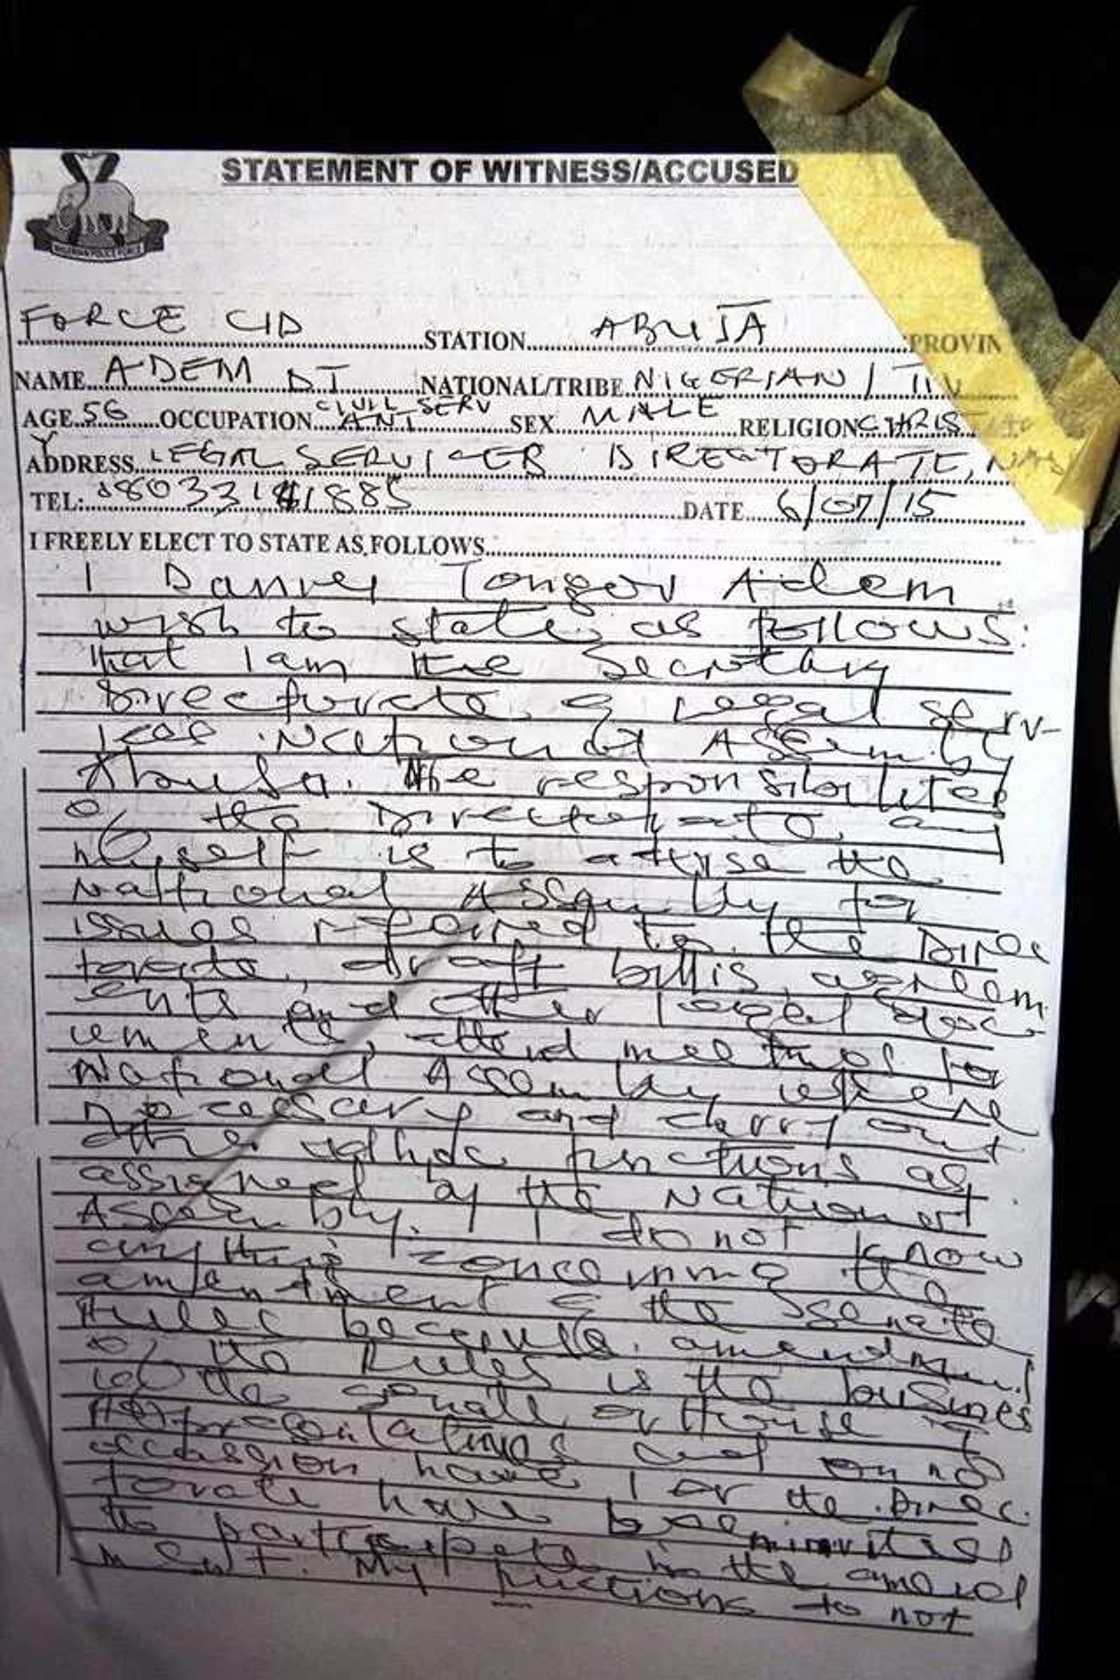 STATEMENT OF WITNESS/ACCUSED
NIGERIAN POLICE FORCE
FORCE CID STATION ABUJA PROVIN
NAME ADEM DT NATIONAL/TRIBE NIGERIAN / TIV
AGE 56 OCCUPATION CIVIL SERV
ANT SEX MALE RELIGION CHRIST
Y
ADDRESS LEGAL SERVICES DIRECTORATE, NAS
TEL: 08033141885 DATE 6/07/15
I FREELY ELECT TO STATE AS FOLLOWS
I Daniel Tongov Adem
wish to state as follows:
that I am the Secretary
Directorate of Legal serv-
ices National Assembly
Abuja. The responsibilities
of the Directorate and
myself is to advise the
National Assembly for
issues referred to the Direc
torate, draft bills, agreem
ents and other legal doc
uments, attend meetings for
National Assembly where
necessary and carry out
other adhoc functions as
assigned by the National
Assembly. I do not know
anything concerning the
amendment of the Senate
Rules because amendment
of the Rules is the business
of the Senate or House of
Representatives and on no
occassion have I or the Direc
torate have been invited
to participate in the amend
ment. My functions do not